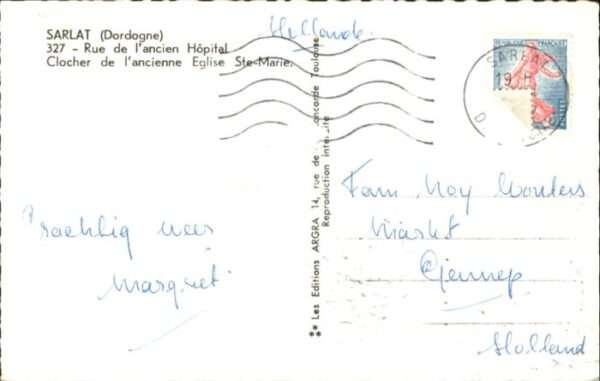 SARLAT (Dordogne)
327 - Rue de l'ancien Hôpital
Clocher de l'ancienne Eglise Ste-Marie.
Hollande
SARLAT
19 H
Prachtig weer
Margriet
** Les Editions ARGRA 14, rue de la Concorde Toulouse
Reproduction interdite
Fam. Noy Wouters
Markt
Gennep
Holland